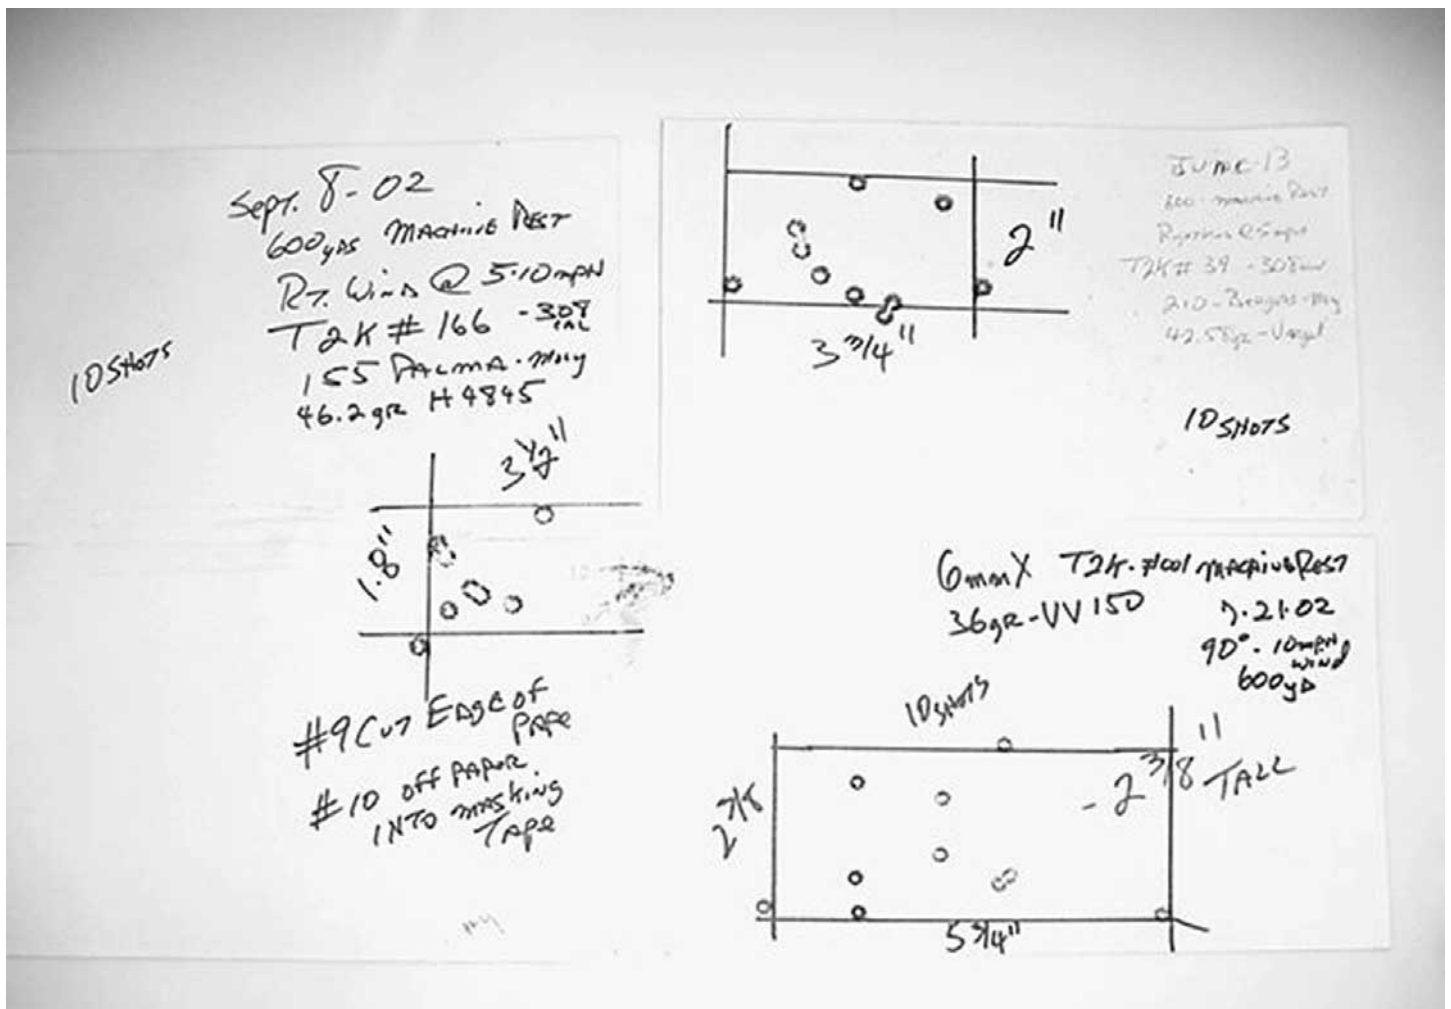 Sept. 8-02
600yds Machine Rest
Rt. Wind @ 5-10mph
T2K # 166 -308
CAL
155 Palma-Moly
46.2gr H4845
10 SHOTS
3 1/2"
1.8"
#9 Cut Edge of
Pape
#10 off paper
INTO masking
Tape
2"
3 3/4"
June 13
600 - machine Rest
T2K # 39 -308
210-Bergers-Moly
10 SHOTS
6mmX T2K-#001 machine Rest
36gr-VV150
7.21.02
90°-10mph
wind
600yd
10 shots
-2 3/8" TALL
5 3/4"